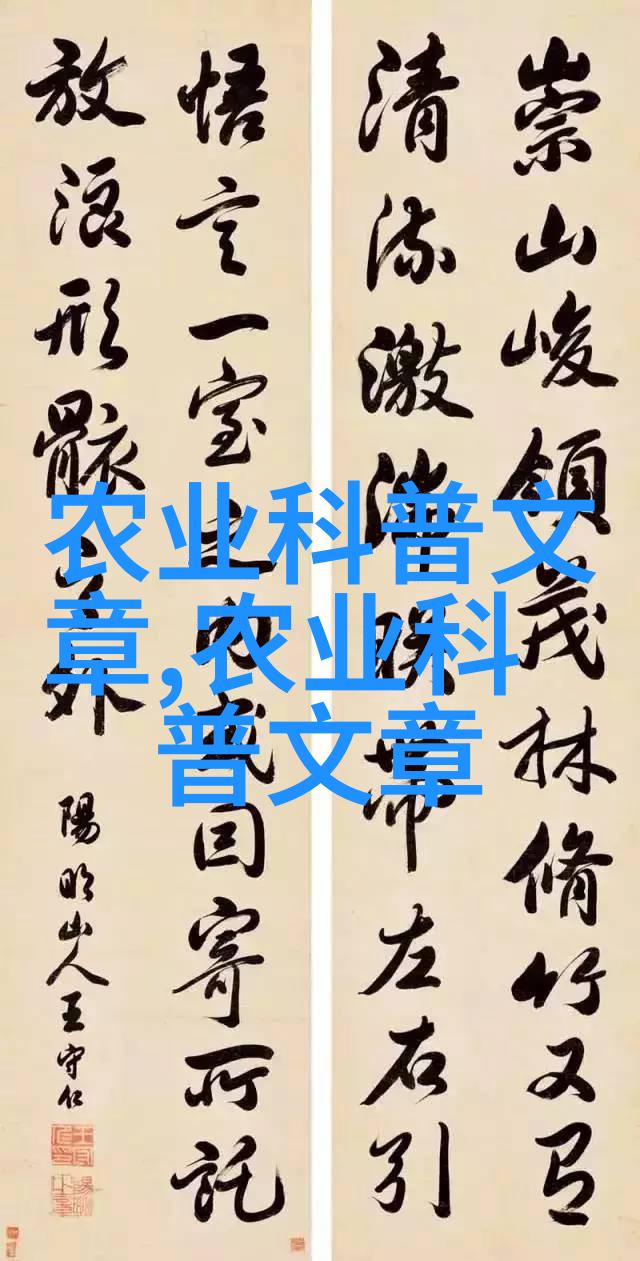 崇山峻領茂林脩竹又有
清流激湍暎帶左右引
悟言一室之内或因寄所託
放浪形骸之外
陽明山人王守仁
农业科普文
章,农业科
普文章